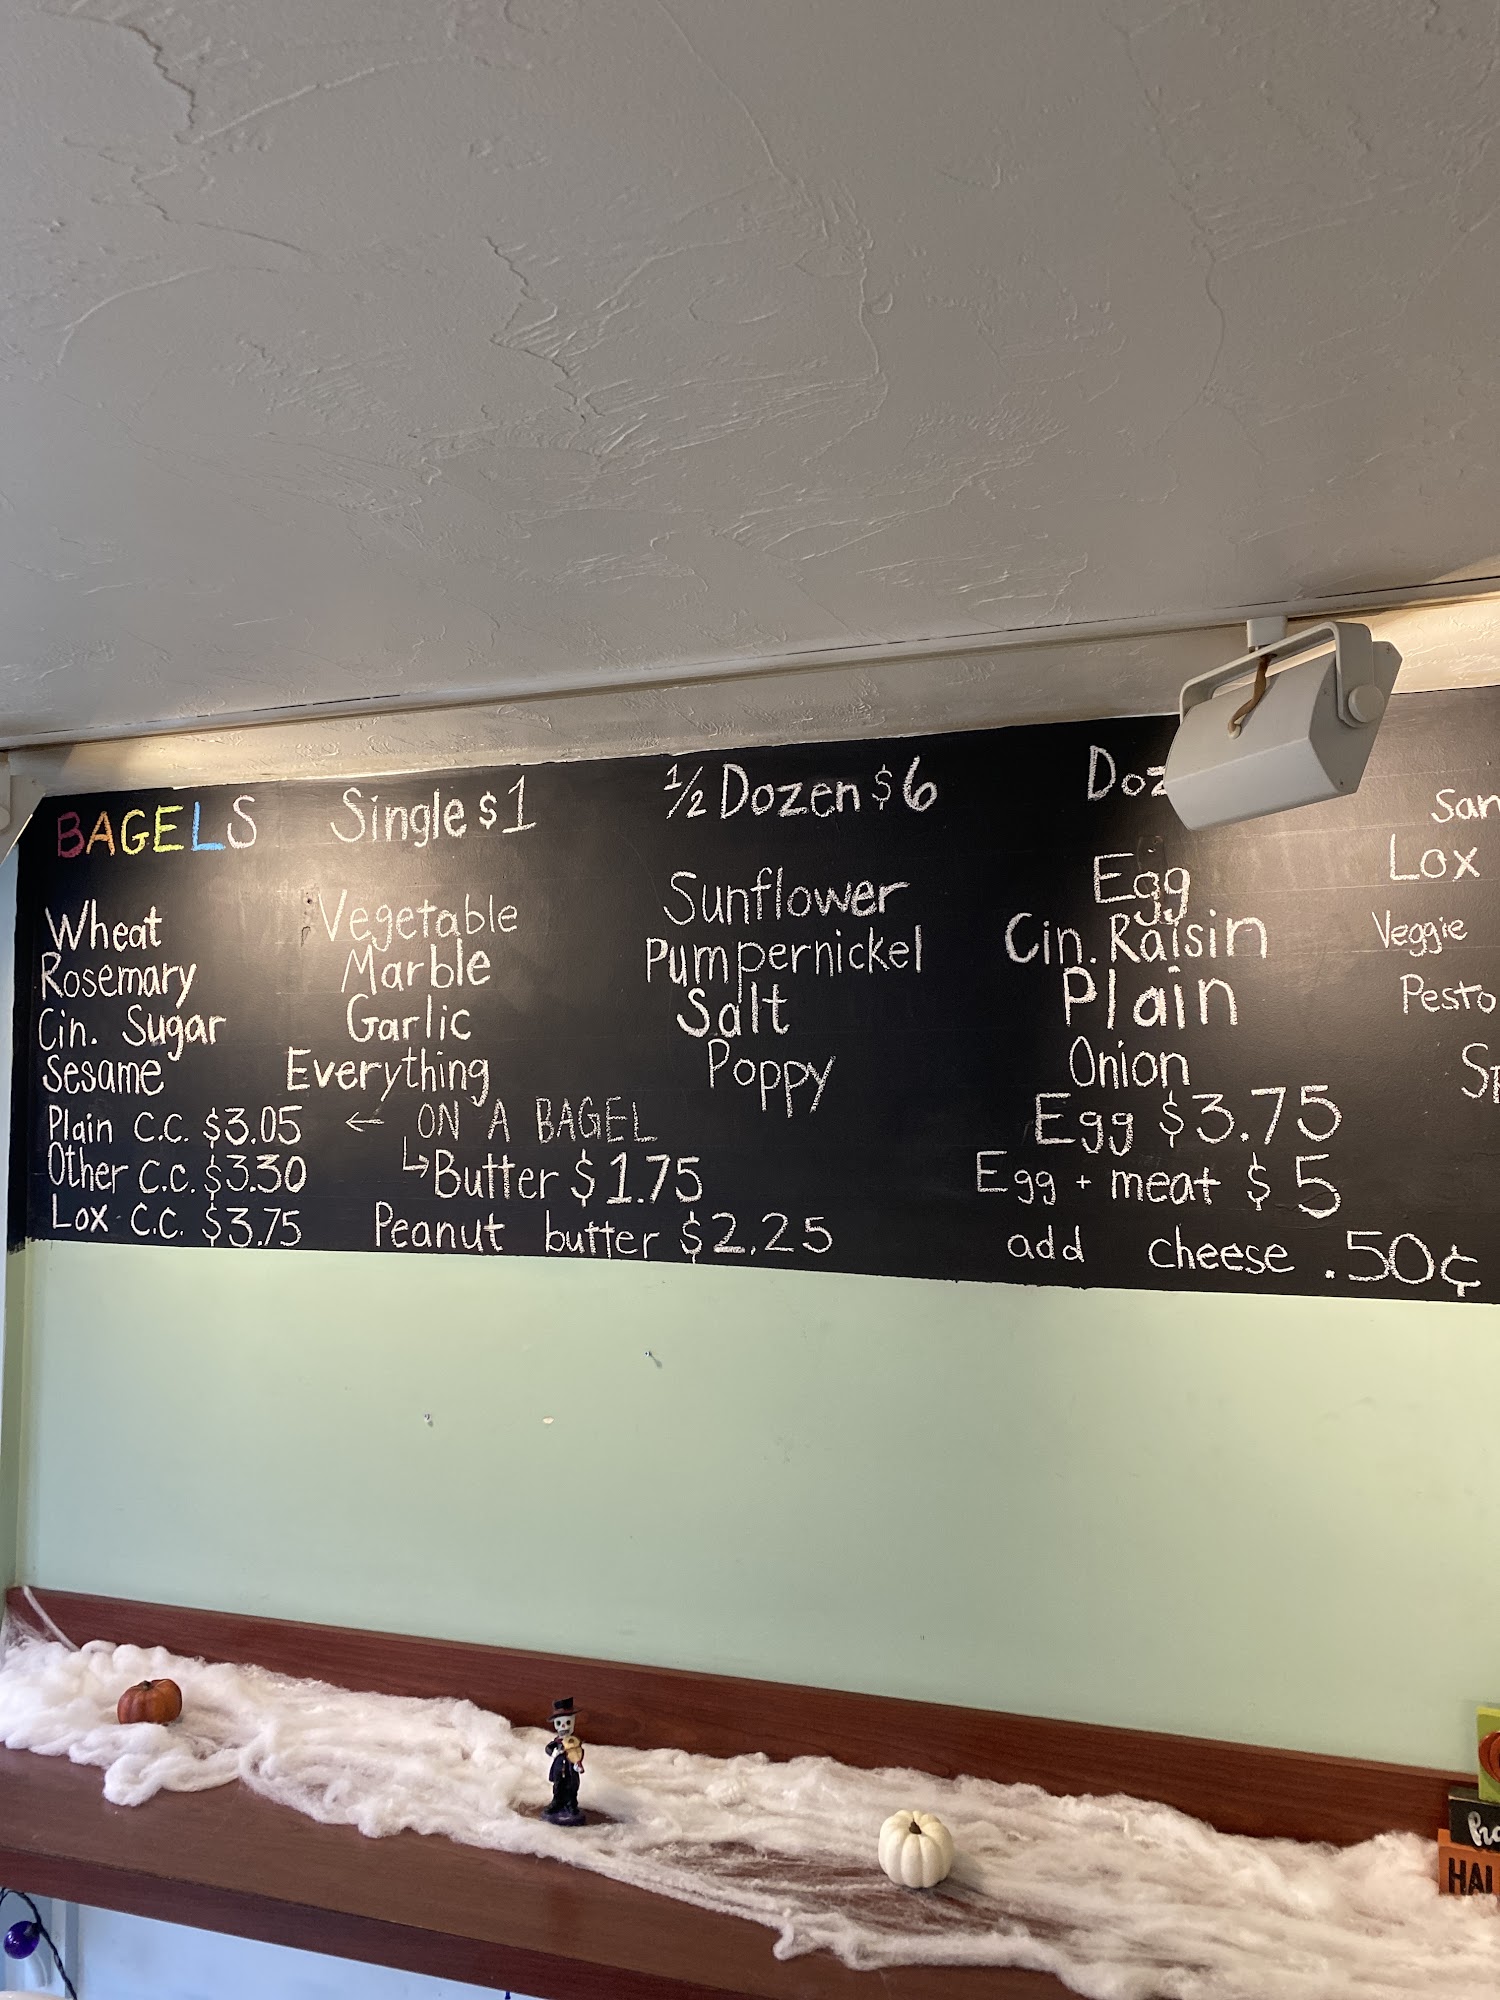 BAGELS Single $1 1/2 Dozen $6
Wheat Vegetable Sunflower Egg Lox
Rosemary Marble Pumpernickel Cin. Raisin Veggie
Cin. Sugar Garlic Salt Plain Pesto
Sesame Everything Poppy Onion
Plain C.C. $3.05 ← ON A BAGEL Egg $3.75
Other C.C. $3.30 ↳Butter $1.75 Egg + meat $5
Lox C.C. $3.75 Peanut butter $2.25 add cheese .50¢